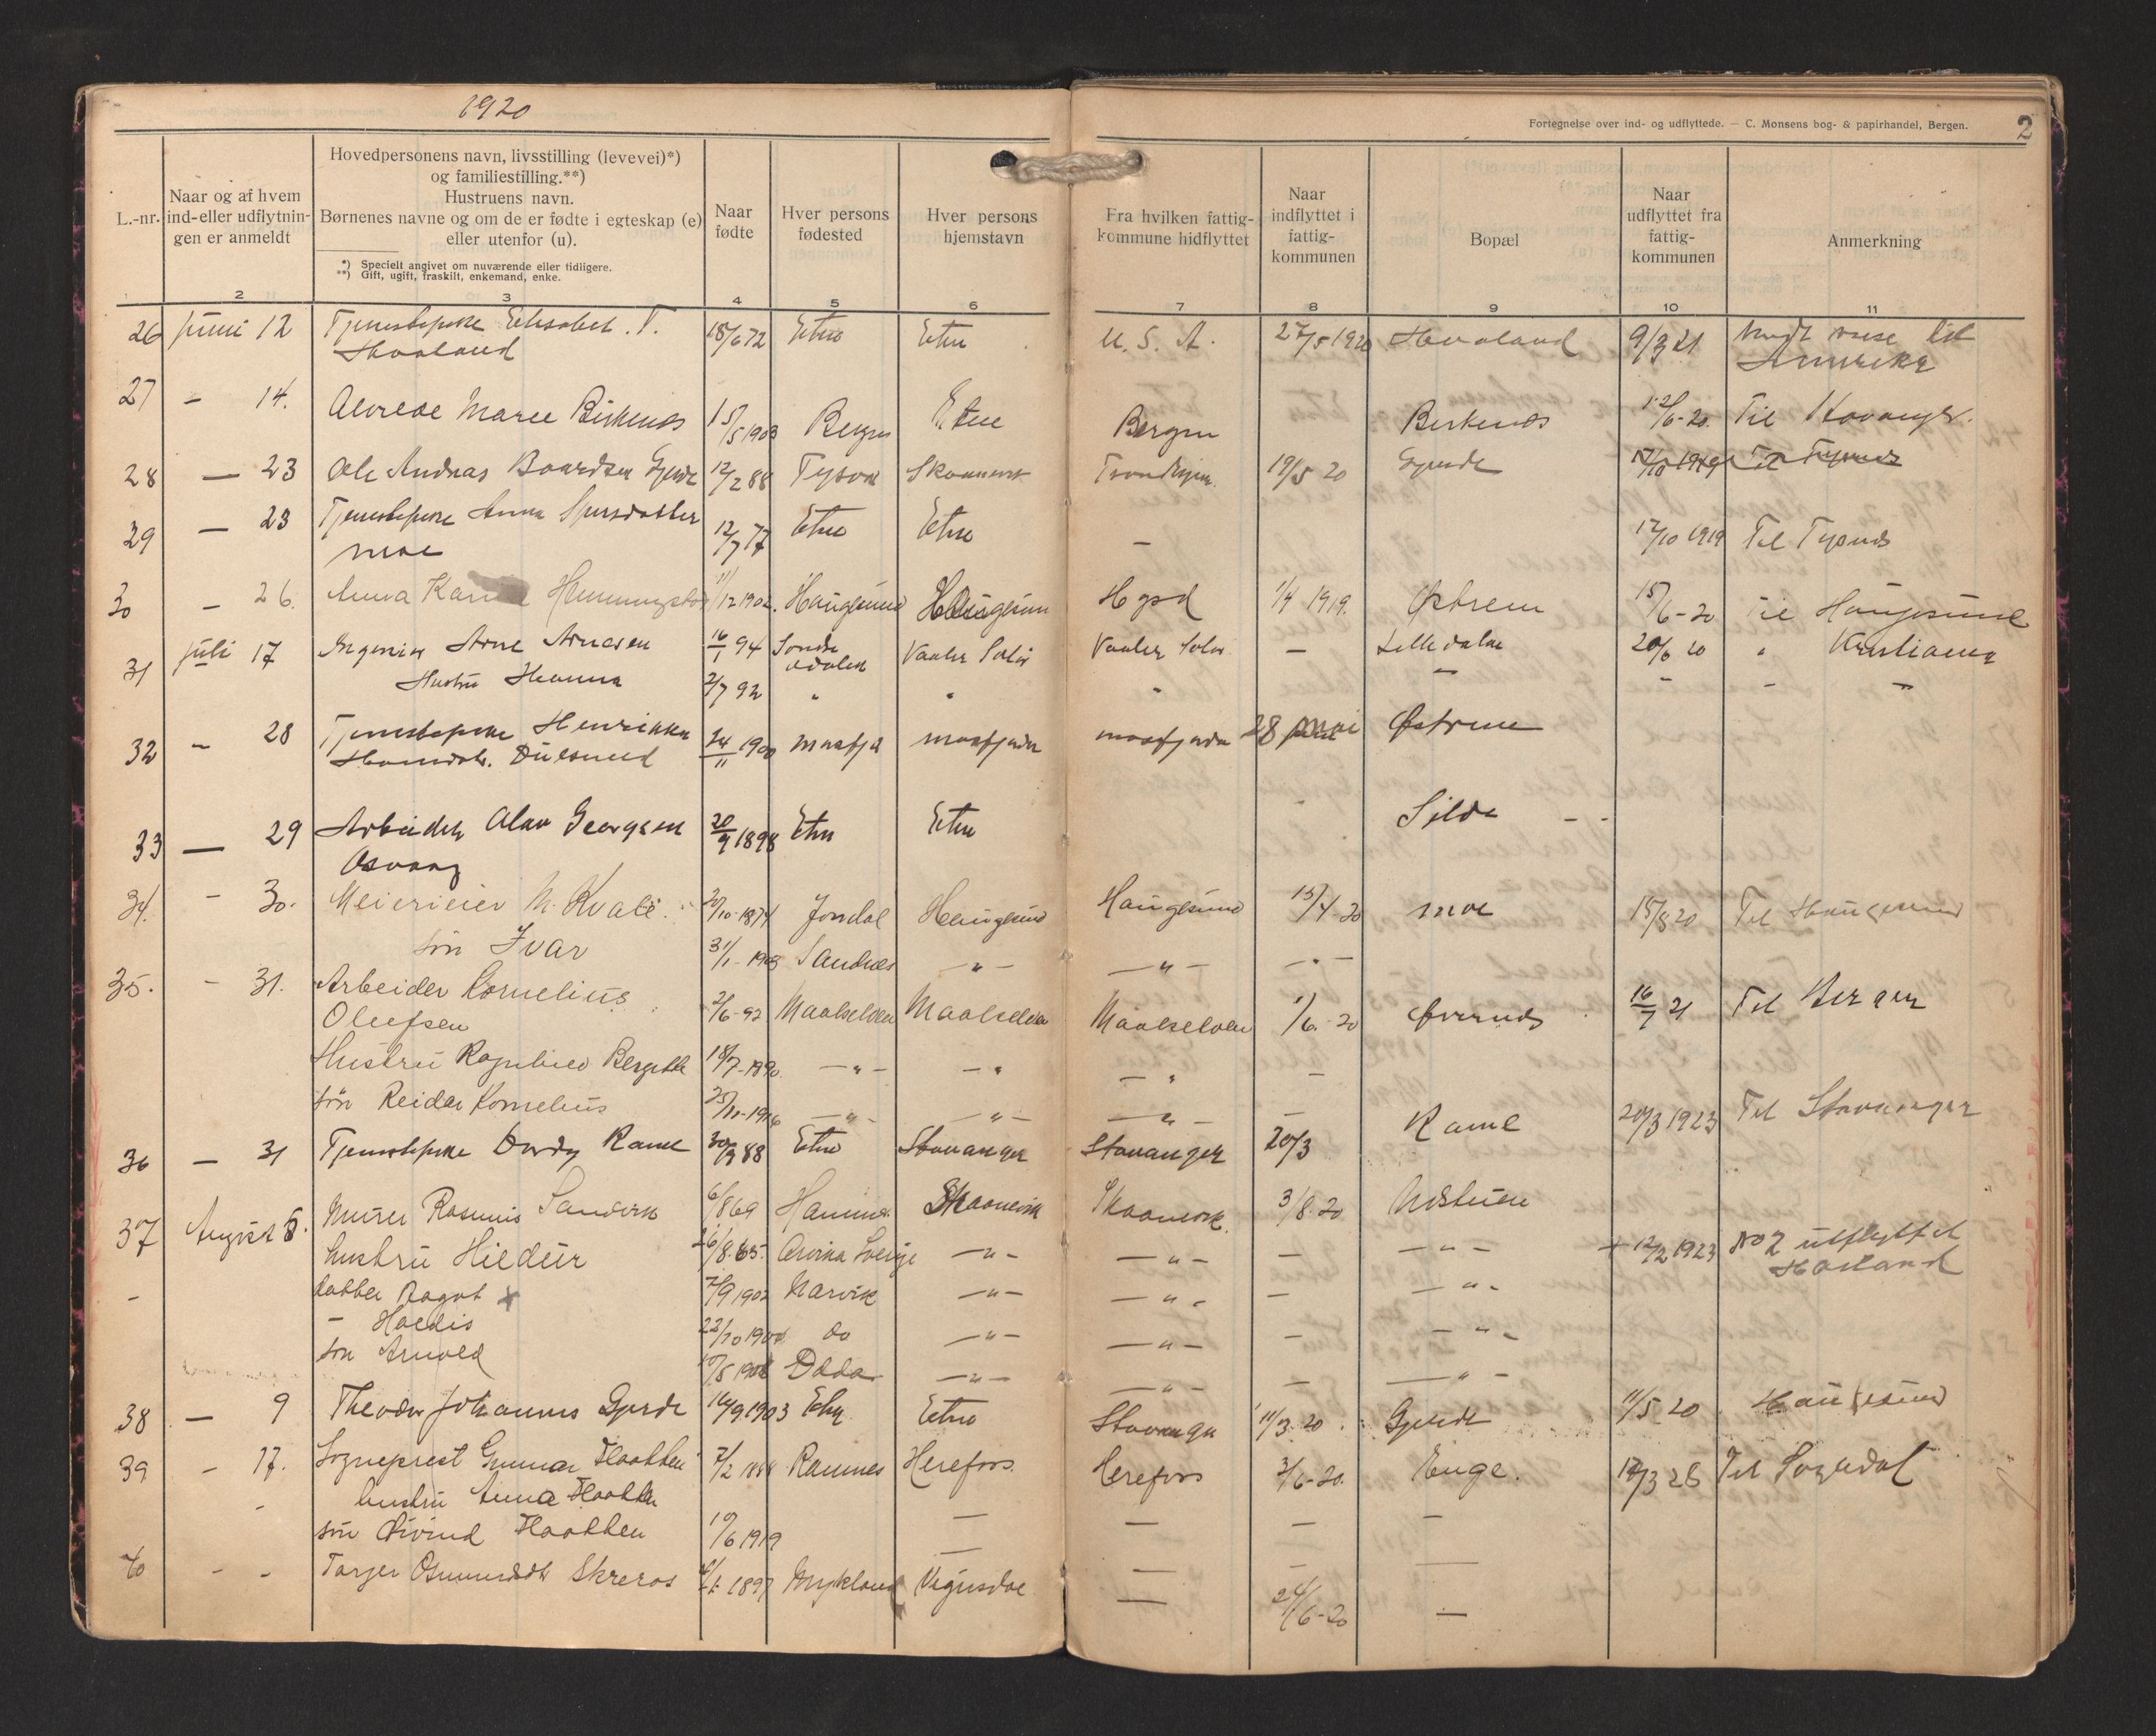 1920
Fortegnelse over ind- og udflyttede. — C. Monsens bog- & papirhandel, Bergen.
2
L.-nr.
Naar og af hvem
ind-eller udflytnin-
gen er anmeldt
Hovedpersonens navn, livsstilling (levevei)*)
og familiestilling.**)
Hustruens navn.
Børnenes navne og om de er fødte i egteskap (e)
eller utenfor (u).
*) Specielt angivet om nuværende eller tidligere.
**) Gift, ugift, fraskilt, enkemand, enke.
Naar
fødte
Hver persons
fødested
Hver persons
hjemstavn
Fra hvilken fattig-
kommune hidflyttet
Naar
indflyttet i
fattig-
kommunen
Bopæl
Naar
udflyttet fra
fattig-
kommunen
Anmerkning
2 3 4 5 6 7 8 9 10 11
26 Juni 12 Tjenestepike Elisabet. T. 18/6 72 Etne Etne U. S. A. 27/5 1920 Haaland 9/3 21 til
Haaland Amerika
27 — 14. Marie Birkenes 15/5 1903 Bergen Etne Bergen Birkenes 12/6-20. Til Stavanger.
28 — 23 Ole Andreas Baardsen Gjerde 12/2 88 Skaanevik Trondhjem 19/5 20 Gjerde 17/10 1919 Til Tysnes
29 — 23 Tjenestepike Anna Sjursdatter 12/7 77 Etne Etne — 17/10 1919 Til Tysnes
Moe
30 — 26. Anna 11/12 1902. Haugesund Haugesund Hgsd 1/4 1919. Østrem 15/6-20 Til Haugesund
31 Juli 17 Ingeniør Arne Arnesen 16/1 94 Søndre Odalen Vaaler Solør Vaaler Solør — Litledalen 20/6 20 " Kristiania
Hustru Hanna 2/7 92 " " " — - - -
32 — 28 Tjenestepike Henrikka 24/11 1900 Masfjd Masfjorden Masfjorden 28 mai Østrem
33 — 29 Arbeider Olav Georgsen 20/9 1898 Etne Etne Silde - -
Osvaag
34. — 30. Meierieier M. Kvale. 20/10-1874 Jondal Haugesund Haugesund 15/4-20 Moe 15/8 20 Til Haugesund
søn Ivar 31/1-1903 Sandnes —"— —"— —"—
35. — 31. Arbeider Kornelius 2/6-92 Maalselven Maalselven Maalselven 1/6-20 16/7 21 Til Bergen
Olufsen
Hustru Ragnhild Bergitte 18/7-1890. —"— —" —" —
søn Reidar Kornelius 25/11-1916 —"— —"— —"— —
36 — 31 Tjenestepike Rame 30/9 88 Etne Stavanger Stavanger 20/3 Rame 20/3 1923 Til Stavanger
37 August 5. Murer Rasmus Sandvik 6/8 69 Hammer Skaanevik Skaanevik. 3/8.20
hustru Hildur 26/8.65. Arvika Sverige —"— —"— — —"— + 12/2 1923 No 2 utflyttet
— datter Ragnh 7/9 1902 Narvik —"— —"— — —"— Haaland
— Haldis 22/10 1904 do —"— —"— — —"—
søn Arnold 10/8 1908 Odda —"— —"— — —"—
38 — 9 Theodor Johannes Gjerde 16/9 1903 Etne Etne Stavanger 11/3 20. Gjerde 11/5 20 Haugesund
39 — 17. Sogneprest Gunnar Flaatten 7/2 1888 Ramnes Herefos. Herefos 3/6-20. Enge. 12/3 28 Til Sogndal
- hustru Anna Flaatten — — — —
søn Øivind Flaatten 10/6 1919 — — — —
40 - - Targer Osmundsdt Skreros 1897 Mykland Vegusdal — 24/6-20 —